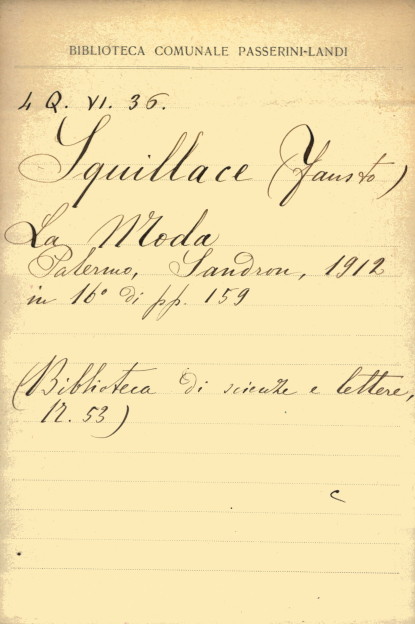 BIBLIOTECA COMUNALE PASSERINI-LANDI
4 Q. VI. 36.
Squillace (Fausto)
La Moda
Palermo, Sandron, 1912
in 16° di pp. 159
(Biblioteca di scienze e lettere,
N. 53)
c